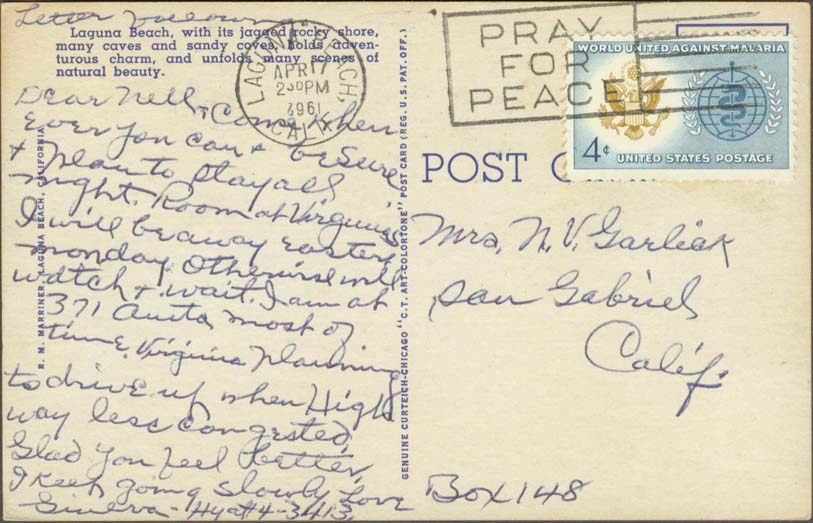 Letter following
Laguna Beach, with its jagged rocky shore,
many caves and sandy coves, holds adven-
turous charm, and unfolds many scenes of
natural beauty.
Dear Nell + Come when
ever you can + be sure
+ plan to stay all
night. Room at Virginias
I will be away Easter +
monday. Otherwise will
watch + wait. I am at
371 Anita most of
time. Virginia planning
to drive up when High
way less congested.
Glad you feel better,
I keep going slowly Love
Ginevra - Hyatt 4-3413.
R. M. MARRINER, LAGUNA BEACH, CALIFORNIA
GENUINE CURTEICH-CHICAGO "C. T. ART-COLORTONE" POST CARD (REG. U. S. PAT. OFF.)
LAGUNA BEACH,
APR 17
2:30 PM
1961
CALIF.
PRAY
FOR
PEACE
WORLD UNITED AGAINST MALARIA
4¢
UNITED STATES POSTAGE
POST
Mrs. N. V. Garlick
San Gabriel
Calif.
Box 148